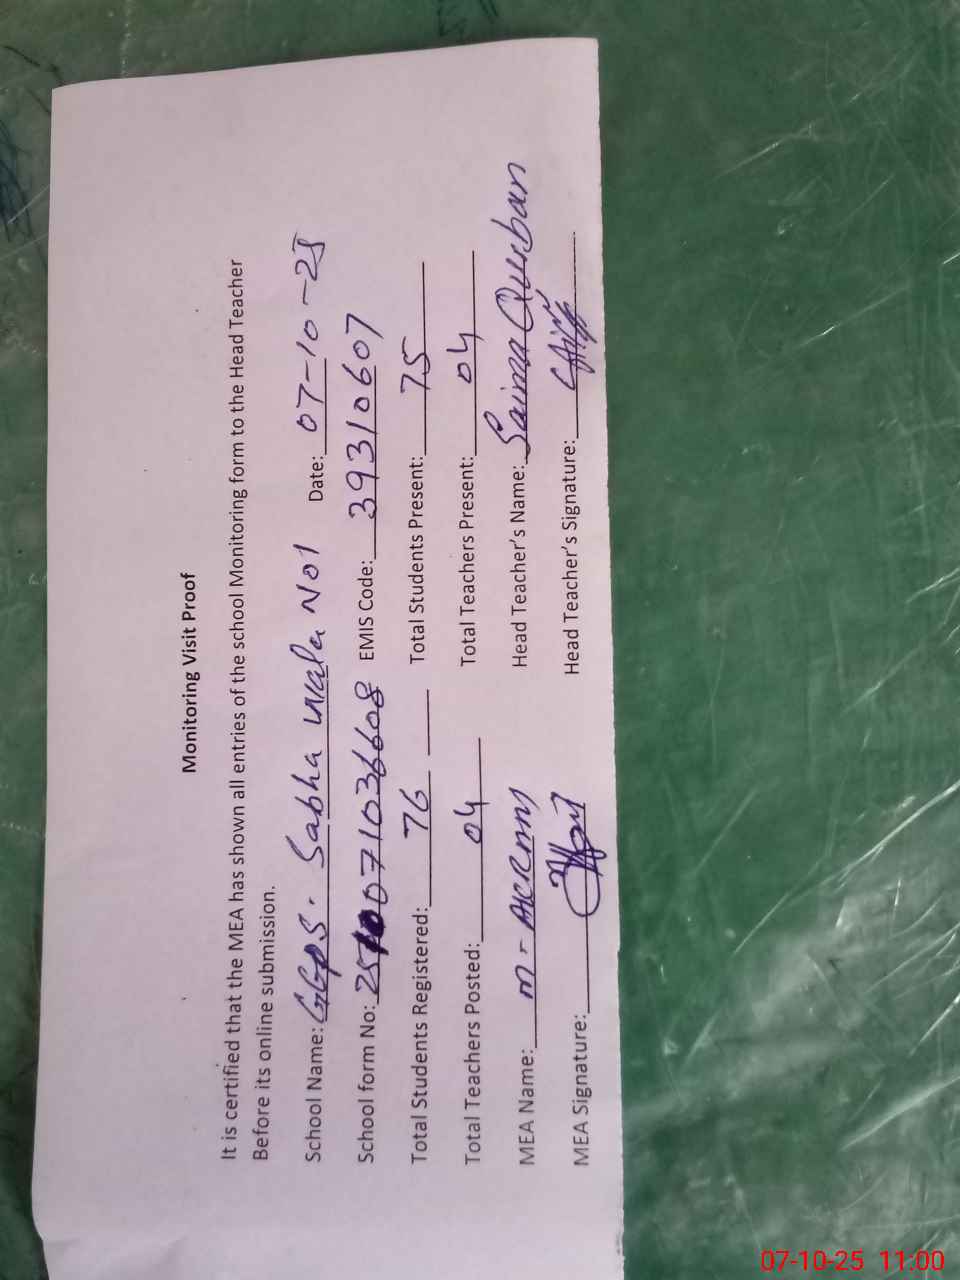 Monitoring Visit Proof
It is certified that the MEA has shown all entries of the school Monitoring form to the Head Teacher
Before its online submission.
School Name: GGPS. Sabha wala No1 Date: 07-10-25
School form No: EMIS Code: 39310607
Total Students Registered: 76 Total Students Present: 75
Total Teachers Posted: 04 Total Teachers Present: 04
MEA Name: M- Akram Head Teacher's Name: Saima Qurban
MEA Signature: Head Teacher's Signature:
07-10-25 11:00